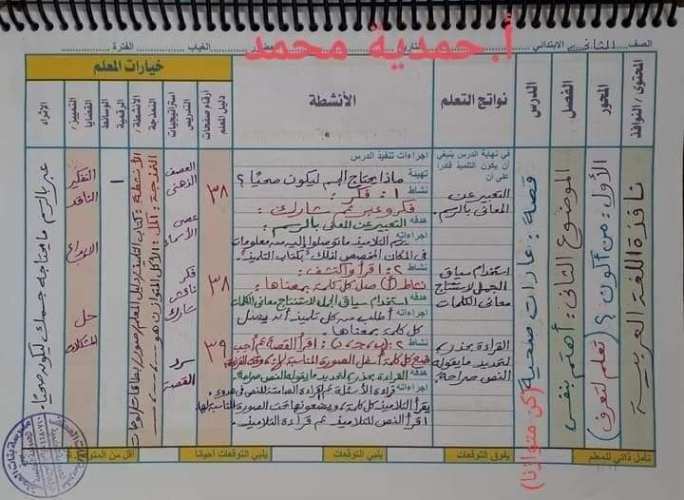 أ.حمدية محمد
الصف الثاني الابتدائي
التاريخ
الغياب
الفترة
المحتوى / النوافذ
المحور
الفصل
الدرس
نواتج التعلم
الأنشطة
خيارات المعلم
أرقام صفحات دليل المعلم
استراتيجيات التدريس
الأنشطة / النمذجة
الوسائط الرقمية
القضايا / التمييز
الإثراء
نافذة اللغة العربية
الأول: من أكون؟ (تعلم لتعرف)
الموضوع الثاني: أهتم بنفسي
قصة: عادات صحية
(كن متوازنا)
في نهاية الدرس ينبغي
أن يكون التلميذ قادرا
على أن
التعبير عن
المعاني بالرسم.
استخدام سياق
الجمل لاستنتاج
معاني الكلمات
القراءة بحذر،
لتحديد ما يقوله
النص صراحة.
إجراءات تنفيذ الدرس
تهيئة ماذا يحتاج الجسم ليكون صحيًا؟
نشاط ١: فكر:
فكر وعبر ثم شارك:
هدفه التعبير عن المعاني بالرسم.
إجراءاته
يرسم التلاميذ ما توصلوا إليه من معلومات
في المكان المخصص لذلك بكتاب التلميذ.
نشاط ٢: اقرأ واكتشف:
نشاط (أ) صل كل كلمة بمعناها:
هدفه استخدام سياق الجمل لاستنتاج معاني الكلمات
إجراءاته أطلب من كل تلميذ أن يصل
كل كلمة بمعناها.
نشاط ٢: (ب، ج، د): اقرأ القصة ثم أجب
هدفه القراءة بحذر لتحديد ما يقوله النص صراحة.
إجراءاته قراءة الأسئلة ثم القراءة الصامتة للنص في هدوء.
يقرأ التلاميذ كل كلمة، ويضعونها تحت الصورة المناسبة لها.
اقرأ النص للتلاميذ ثم قراءة التلاميذ.
٣٨
٣٨
٣٩
العصف
الذهني
عصى
الأسماء
فكر
ناقش
شارك
سرد
القصة
١
التفكير
الناقد
الإبداع
حل
المشكلات
عبر بالرسم ما يحتاجه جسمك ليكون صحيًا
تأمل ذاتي للمعلم
يفوق التوقعات
يلبي التوقعات
يلبي التوقعات أحيانا
أقل من المتوقع